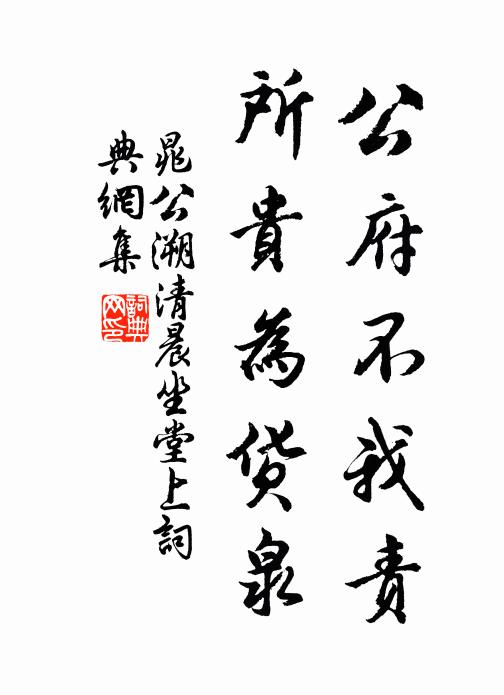 公府不我責
所貴為貨泉
晁公溯清晨坐堂上詞
典網集
詞典网印